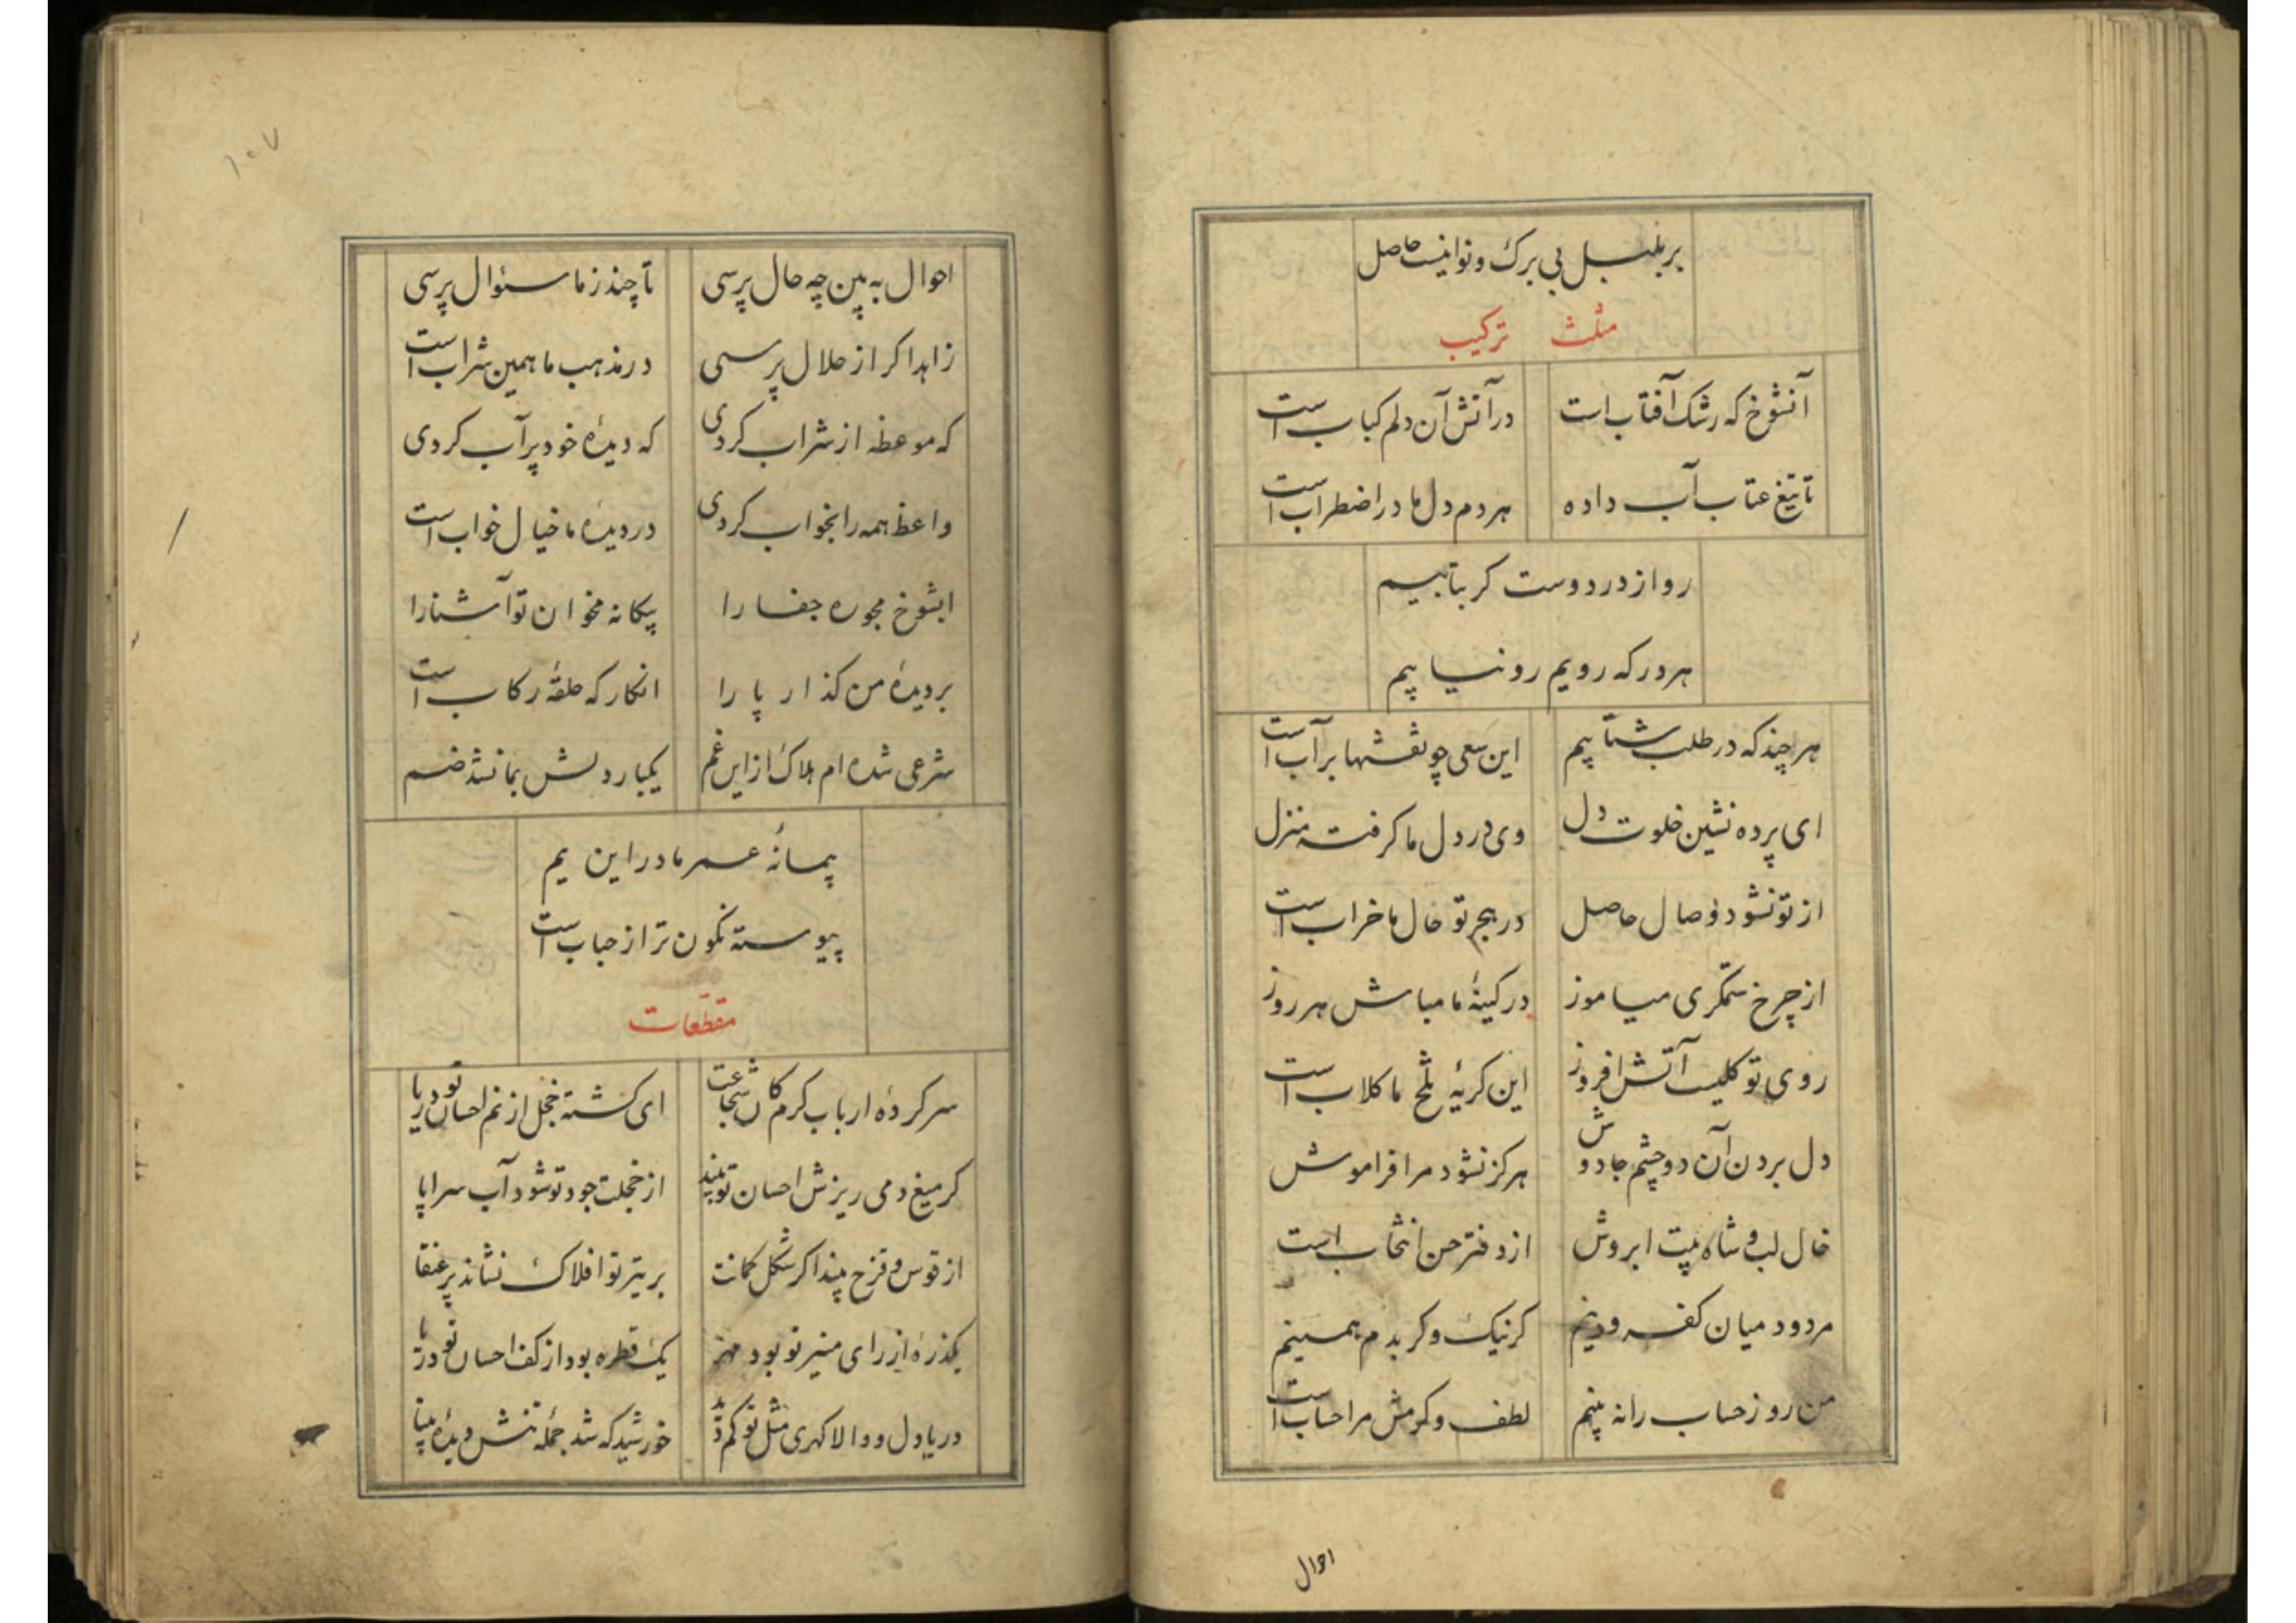 بر بلبل بی برک و نوا نیست حاصل
مثلث ترکیب
آنشوخ که رشک آفتاب است در آتش آن دلم کباب است
تا تیغ عتاب آب داده هر دم دل ما در اضطراب است
رو از در دوست کر بتابیم
هر در که رویم رو نیابیم
هر چند که در طلب شتابیم این سعی چو نقشها بر آب است
ای پرده نشین خلوت دل وی در دل ما کرفته منزل
از تو نشود وصال حاصل در هجر تو حال ما خراب است
از چرخ ستمکری میاموز در کینهٔ ما مباش هر روز
روی تو کلیست آتش افروز این کریهٔ تلخ ما کلاب است
دل بردن آن دو چشم جادوش هرکز نشود مرا فراموش
خال لب و شاه بیت ابروش از دفتر حسن انتخاب است
مردود میان کفر و دینم کر نیک و کر بدم همینم
من روز حساب را نه بینم لطف و کرمش مرا حساب است
احوال
۱۰۷
احوال به بین چه حال پرسی تا چند ز ما سئوال پرسی
زاهد اکر از حلال پرسی در مذهب ما همین شراب است
که موعظه از شراب کردی که دیدهٔ خود پر آب کردی
واعظ همه را بخواب کردی در دیدهٔ ما خیال خواب است
ایشوخ مجو ره جفا را بیکانه مخوان تو آشنا را
بر دیدهٔ من کذار پا را انکار که حلقهٔ رکاب است
شرعی شده ام هلاک از این غم یکبار دلش بما نشد ضم
پیمانهٔ عمر ما در این یم
پیوسته نکون تر از حباب است
مقطعات
سر کردهٔ ارباب کرم کان شجاعت ای کشته خجل از نم احسان تو دریا
کر میغ دمی ریزش احسان تو بیند از خجلت جود تو شود آب سراپا
از قوس و قزح بیند اکر شکل کمانت بر تیر تو افلاک نشاند پر عنقا
یکذرهٔ از رای منیر تو بود مهر یک قطره بود از کف احسان تو دریا
دریا دل و والا کهری مثل تو کم دید خورشید که شد جمله تنش دیدهٔ بینا